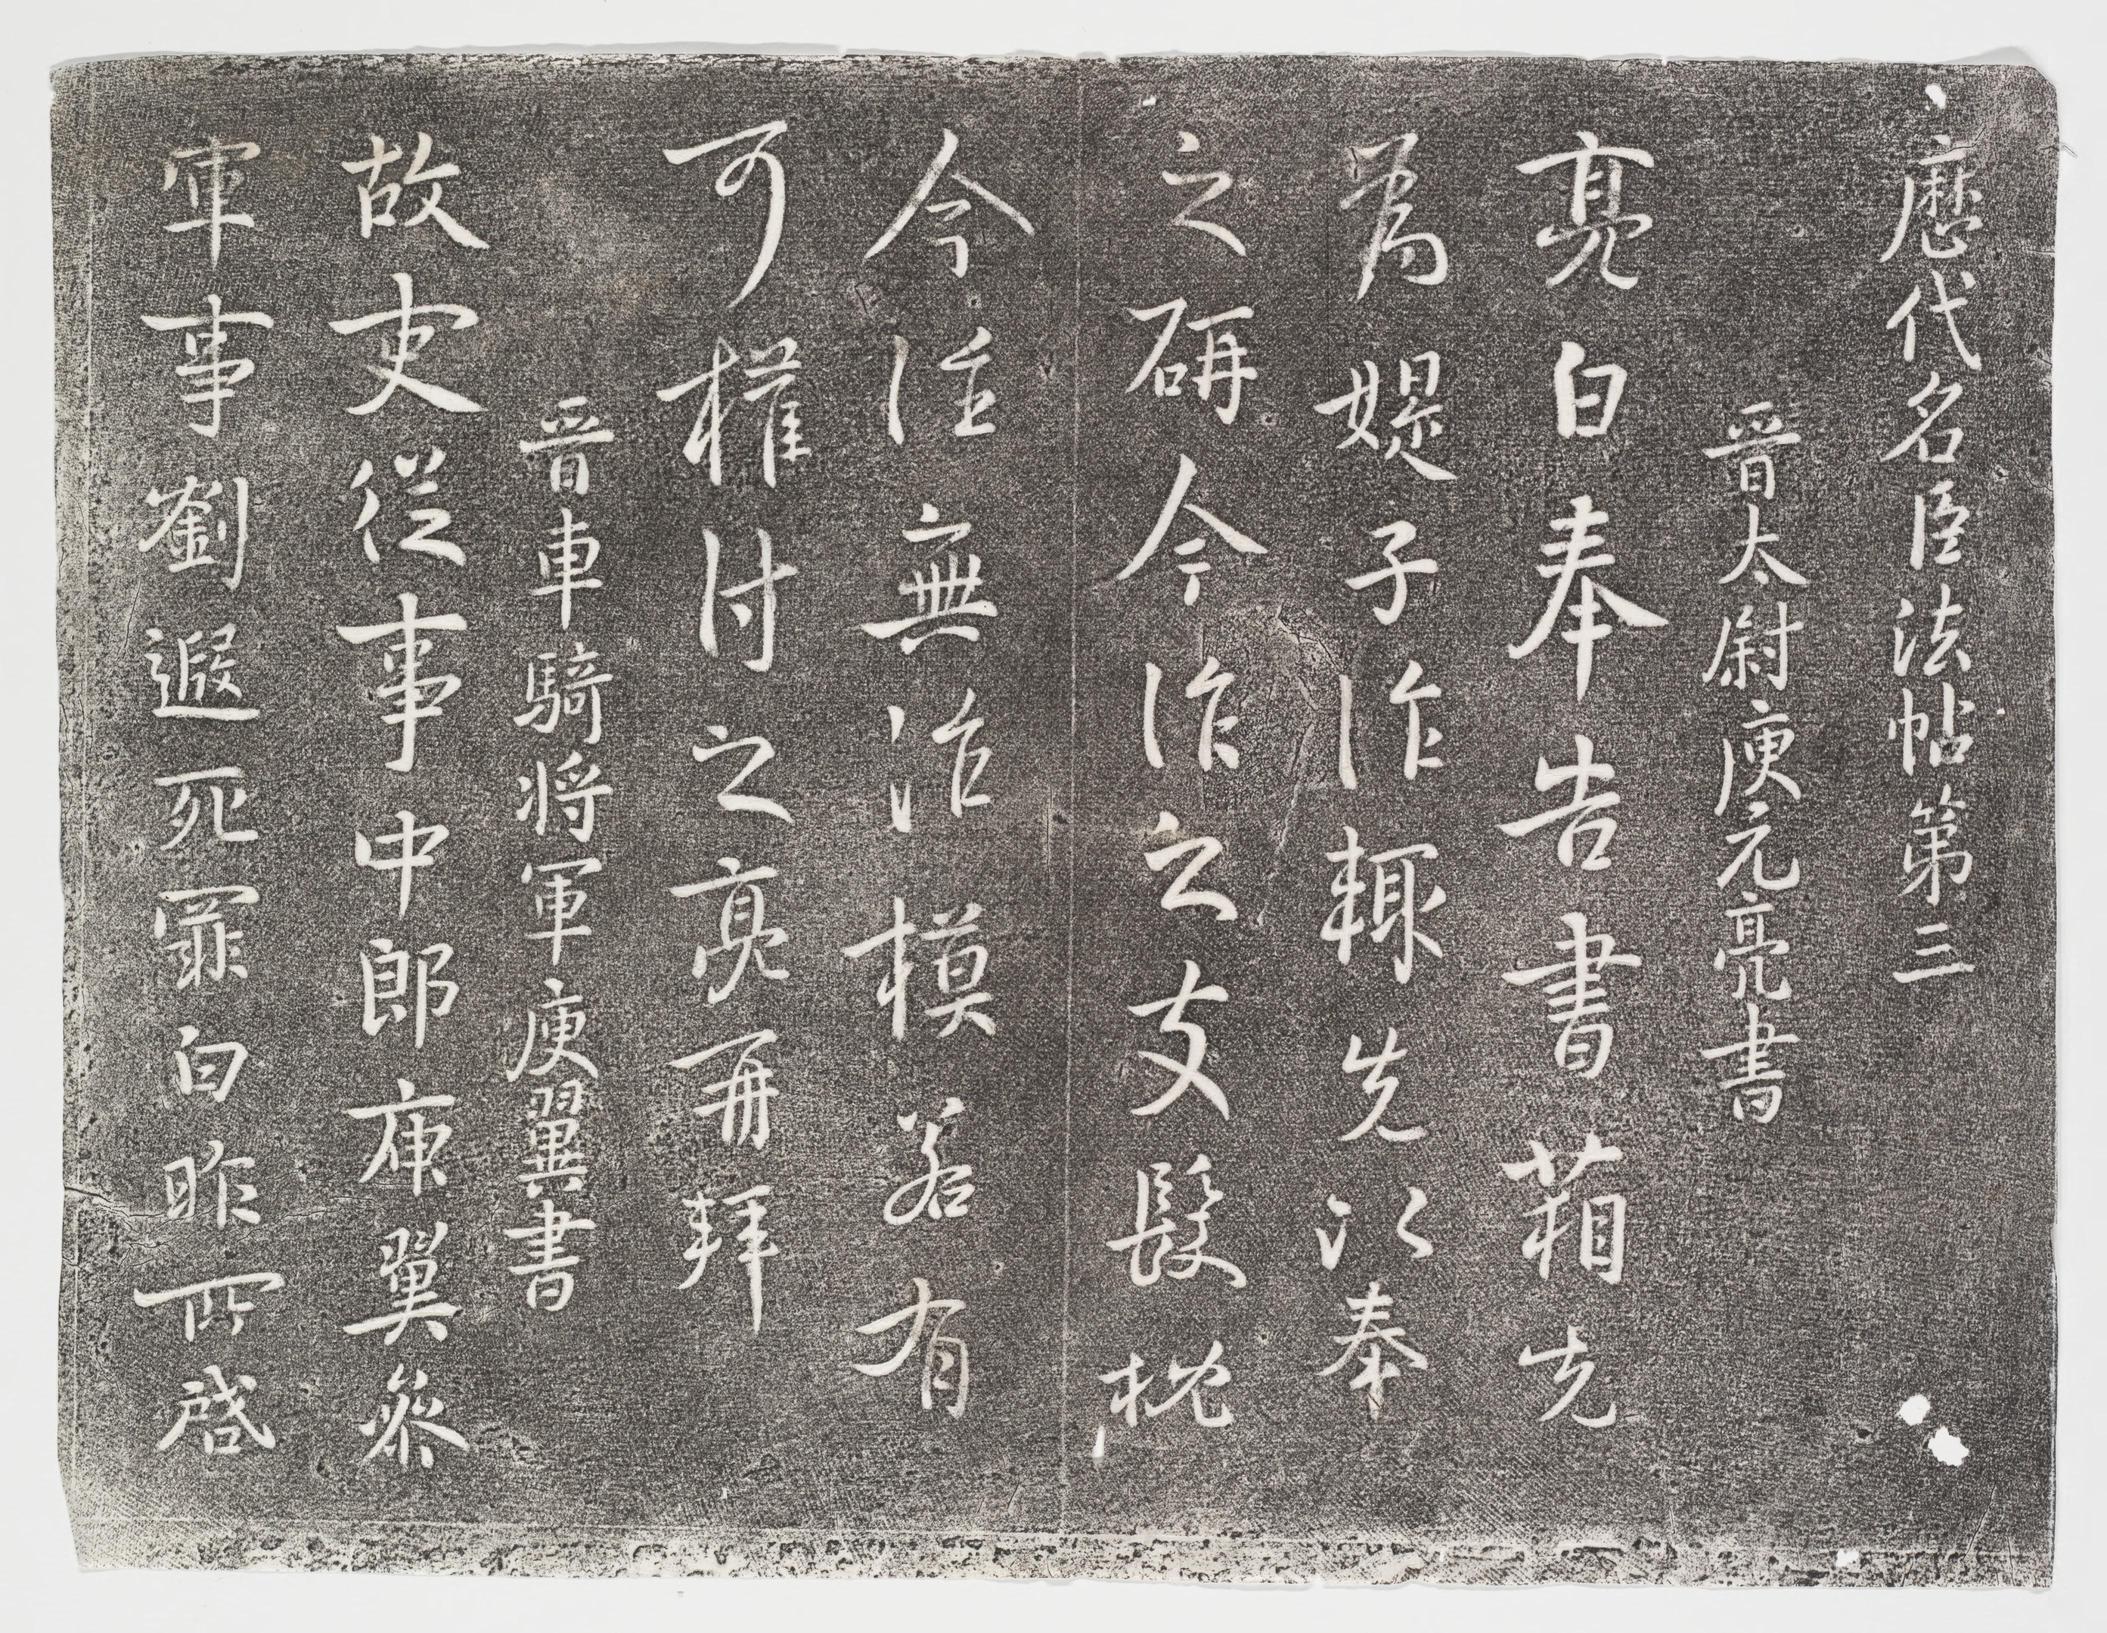 歷代名臣法帖第三
晉太尉庾元亮書
亮白奉告書箱先
為媞子作輒先以奉
之研今作之支髮枕
今往無作模若有
可權付之亮再拜
晉車騎將軍庾翼書
故吏從事中郎庾翼參
軍事劉遐死罪白昨所啓